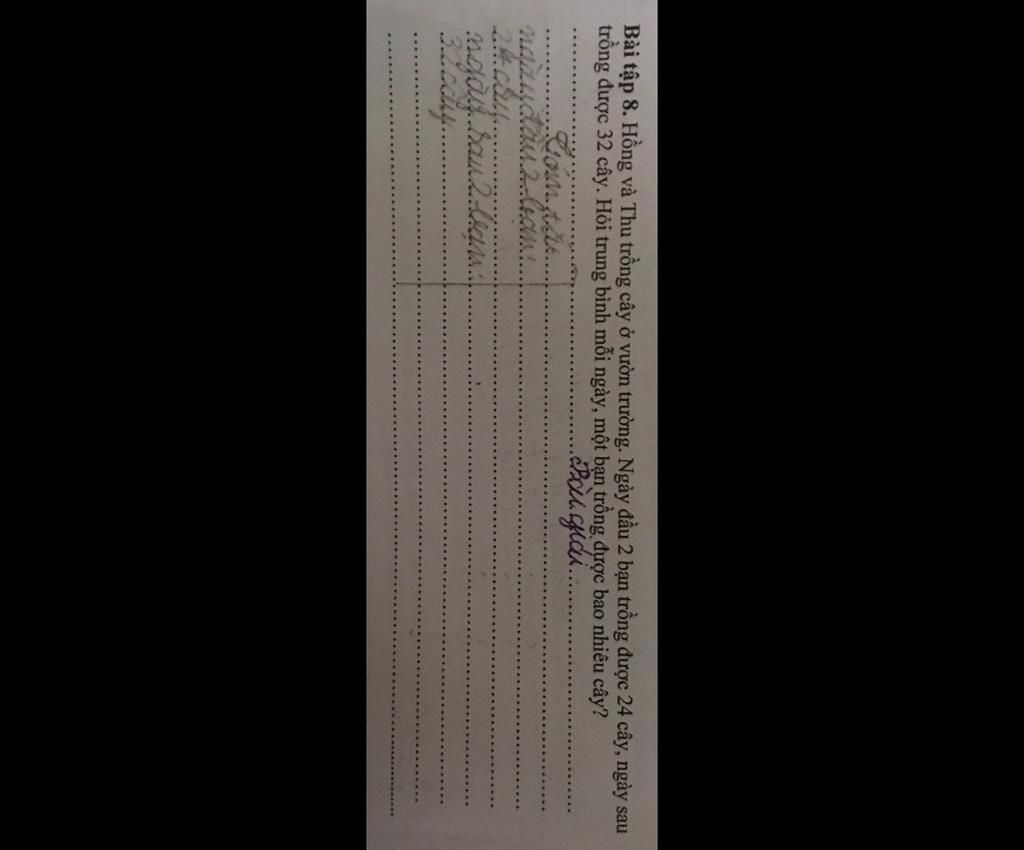 Bài tập 8. Hồng và Thu trồng cây ở vườn trường. Ngày đầu 2 bạn trồng được 24 cây, ngày sau
trồng được 32 cây. Hỏi trung bình mỗi ngày, một bạn trồng được bao nhiêu cây?
Bài giải
Tóm tắt
ngày đầu 2 bạn:
24 cây
ngày sau 2 bạn:
32 cây